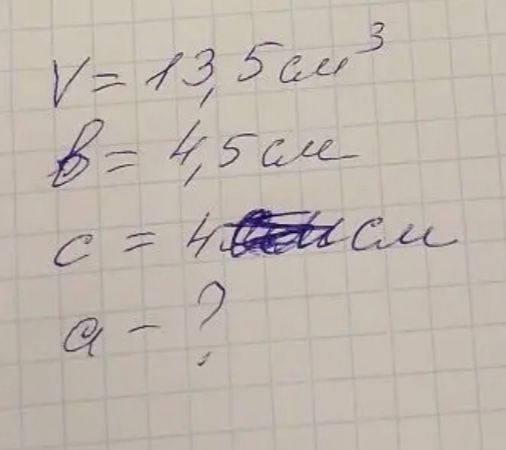 V = 13,5 см³
b = 4,5 см
c = 4 см
a - ?